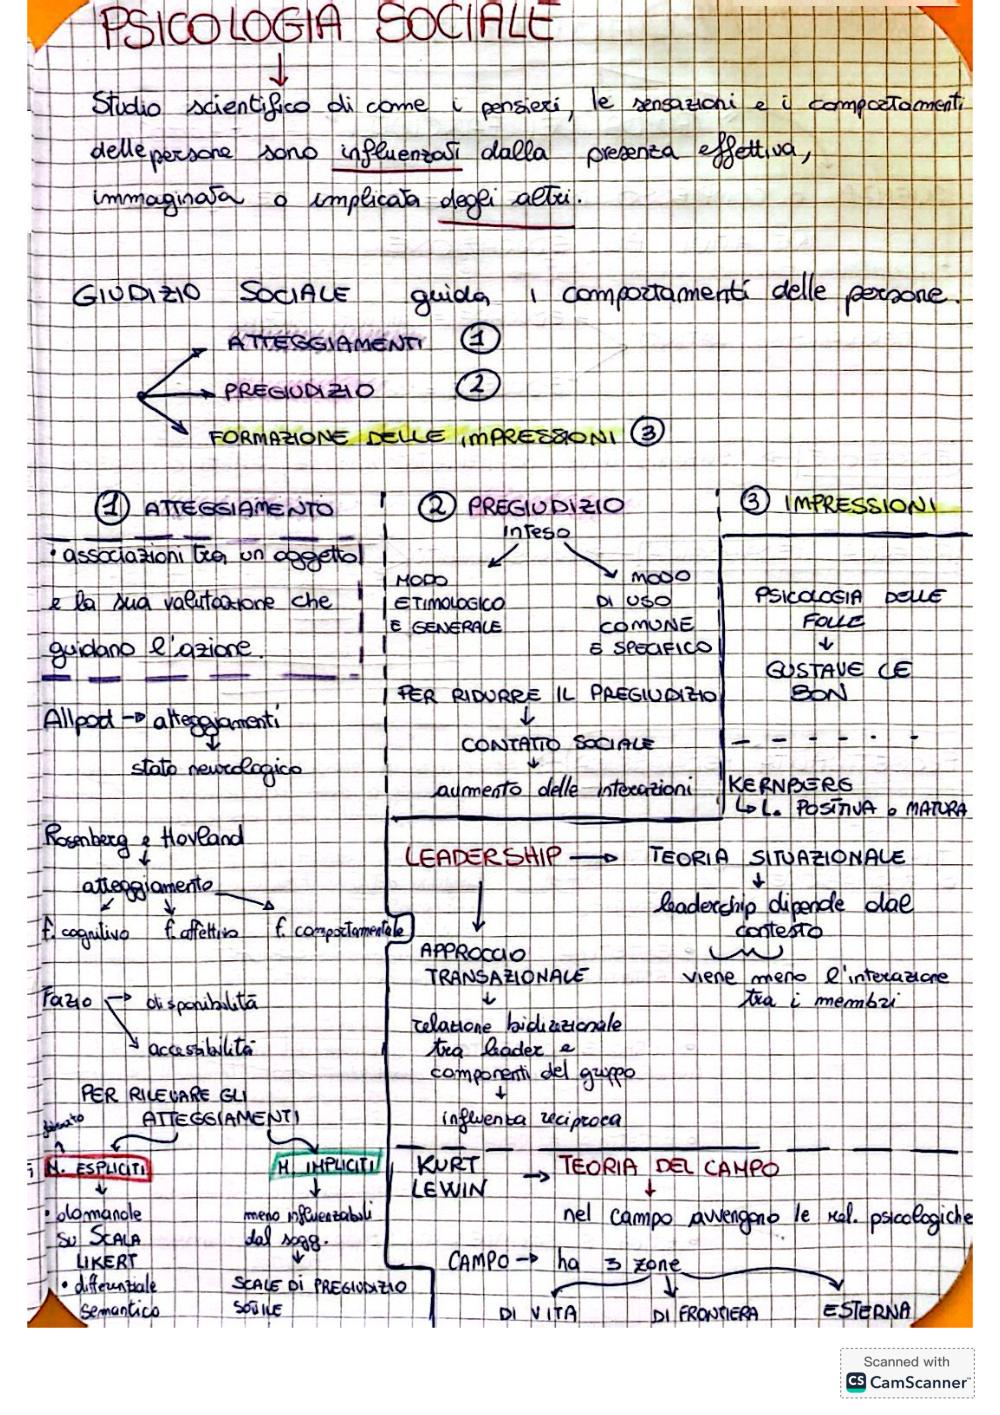 PSICOLOGIA SOCIALE
Studio scientifico di come i pensieri, le sensazioni e i comportamenti
delle persone sono influenzati dalla presenza effettiva,
immaginata o implicata degli altri.
GIUDIZIO SOCIALE guida i comportamenti delle persone.
ATTEGGIAMENTI 1
PREGIUDIZIO 2
FORMAZIONE DELLE IMPRESSIONI 3
1 ATTEGGIAMENTO
• associazioni tra un oggetto
e la sua valutazione che
guidano l'azione.
Allpod → atteggiamenti
↓
stato neurologico
Rosenberg e Hovland
↓
atteggiamento
f. cognitivo f. affettivo f. comportamentale
Fazio → disponibilità
accessibilità
PER RILEVARE GLI
ATTEGGIAMENTI
M. ESPLICITI
• domande
su SCALA
LIKERT
• differenziale
semantico
M. IMPLICITI
meno influenzabili
dal sogg.
↓
SCALE DI PREGIUDIZIO
2 PREGIUDIZIO
inteso
MODO
ETIMOLOGICO
E GENERALE
MODO
DI USO
COMUNE
E SPECIFICO
PER RIDURRE IL PREGIUDIZIO
↓
CONTATTO SOCIALE
↓
aumento delle interazioni
3 IMPRESSIONI
PSICOLOGIA DELLE
FOLLE
↓
GUSTAVE LE
BON
KERNBERG
↳ L. POSITIVA o MATURA
LEADERSHIP → TEORIA SITUAZIONALE
↓
leadership dipende dal
contesto
viene meno l'interazione
tra i membri
APPROCCIO
TRANSAZIONALE
↓
relazione bidirezionale
tra leader e
componenti del gruppo
↓
influenza reciproca
KURT
LEWIN → TEORIA DEL CAMPO
↓
nel campo avvengono le rel. psicologiche
CAMPO → ha 3 zone
DI VITA DI FRONTIERA ESTERNA
Scanned with
CS CamScanner